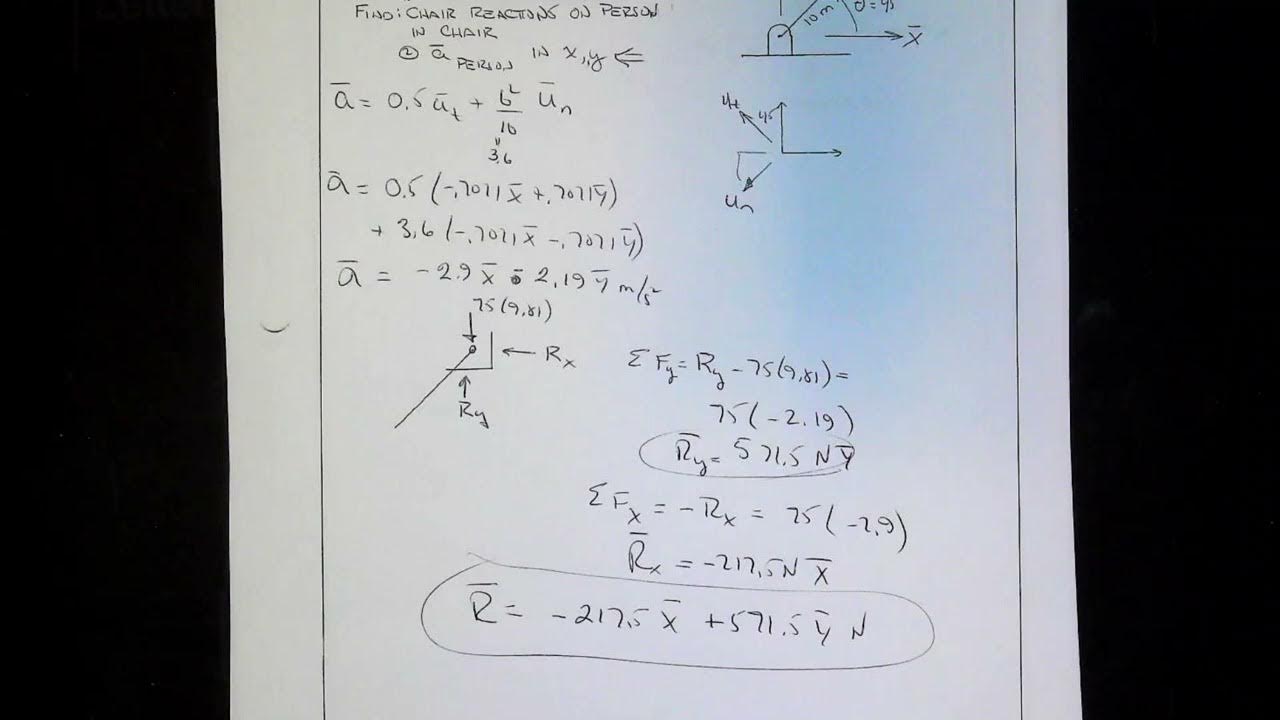 FIND: CHAIR REACTIONS ON PERSON
IN CHAIR
② a̅ PERSON IN x,y ⇐
10m
θ=45
X̅
a̅ = 0.5 u̅t + 6²/10 u̅n
"
3.6
ut
45
un
a̅ = 0.5 (-.7071 x̅ + .7071 y̅)
+ 3.6 (-.7071 x̅ - .7071 y̅)
a̅ = -2.9 x̅ - 2.19 y̅ m/s²
75(9.81)
Rx
Ry
ΣFy = Ry - 75(9.81) =
75(-2.19)
R̅y = 571.5 N y̅
ΣFx = -Rx = 75(-2.9)
R̅x = -217.5 N x̅
R̅ = -217.5 x̅ + 571.5 y̅ N